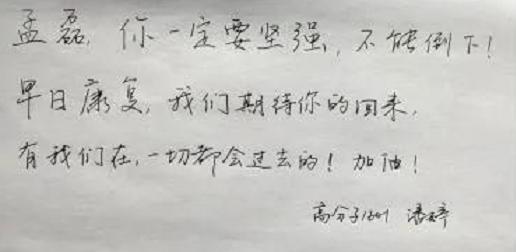 孟磊，你一定要坚强，不能倒下！
早日康复，我们期待你的回来，
有我们在，一切都会过去的！加油！
高分子1301 潘婷